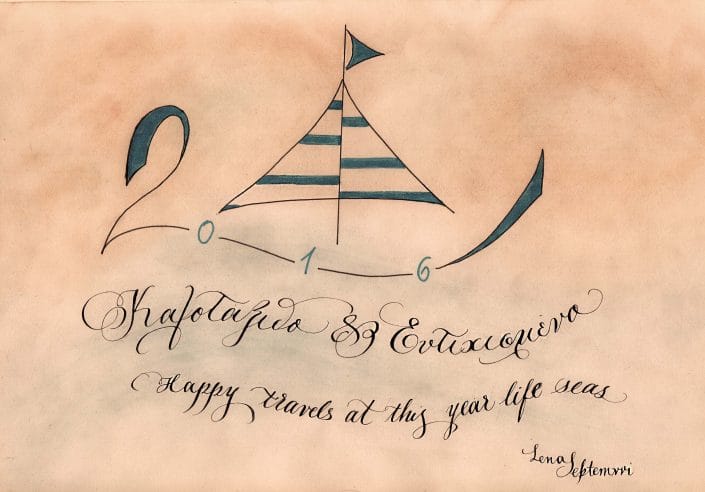 2016
Καλοταξιδο & Ευτιχισμένο
Happy travels at this year life seas
Lena Septemvri